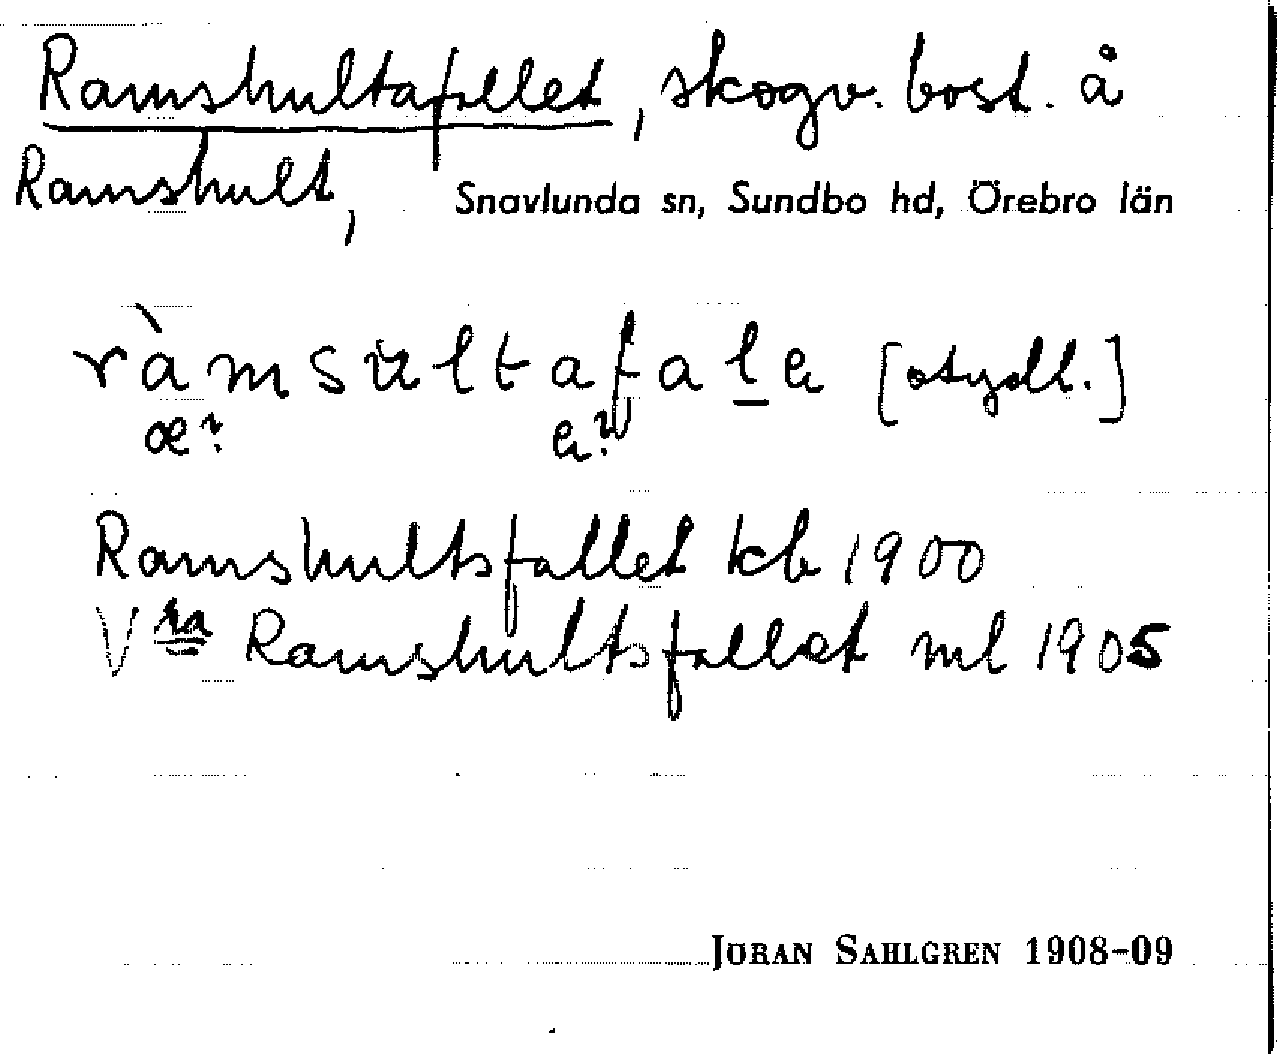 Ramshultafallet, skogv. bost. å
Ramshult, Snavlunda sn, Sundbo hd, Örebro län
ràmsultafalə [otydl.]
æ? ə?
Ramshultsfallet kb 1900
Vra Ramshultsfallet ml 1905
JÖRAN SAHLGREN 1908-09